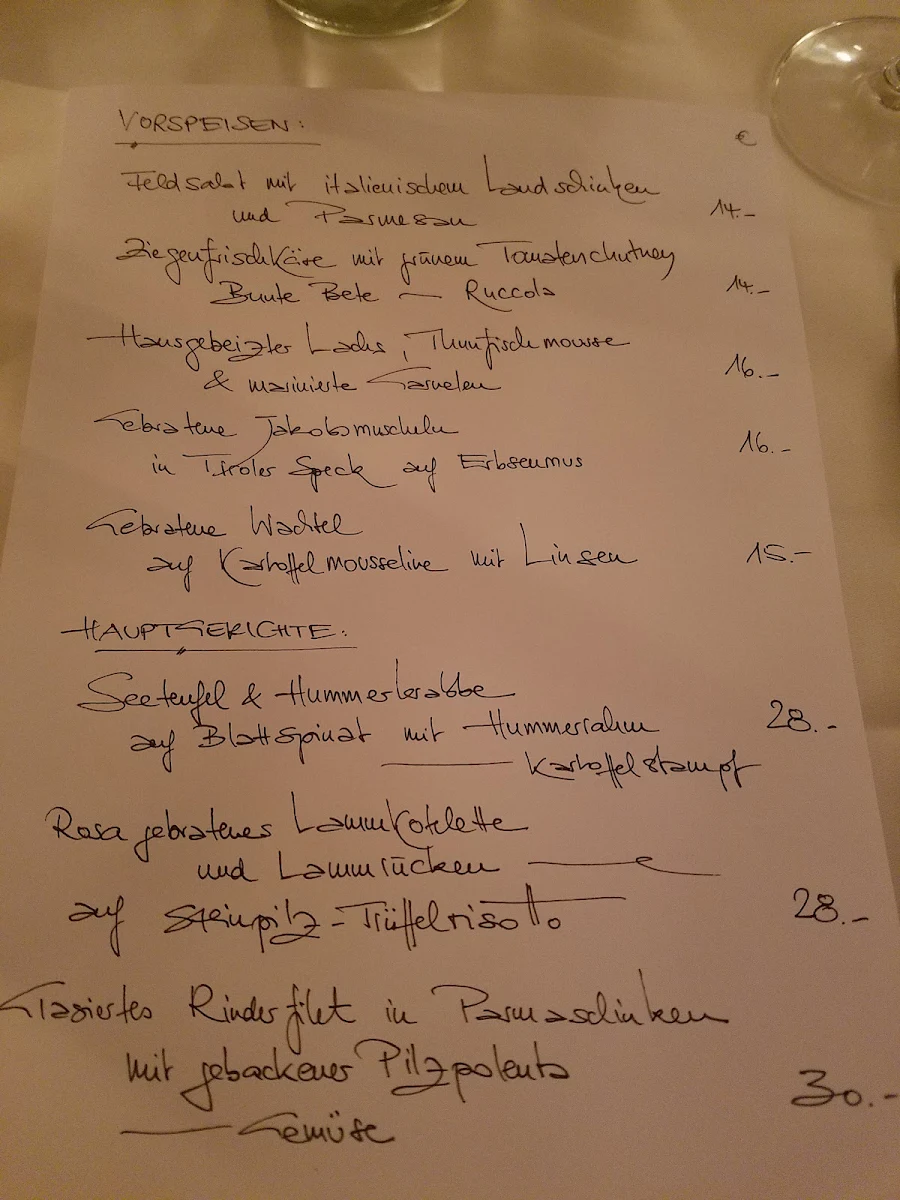 VORSPEISEN:
€
Feldsalat mit italienischem Landschinken
und Parmesan 14.-
Ziegenfrischkäse mit grünem Tomatenchutney
Bunte Bete — Ruccola 14.-
Hausgebeizter Lachs, Thunfischmousse
& marinierte Garnelen 16.-
Gebratene Jakobsmuscheln
in Tiroler Speck auf Erbsenmus 16.-
Gebratene Wachtel
auf Kartoffelmousseline mit Linsen 15.-
HAUPTGERICHTE:
Seeteufel & Hummerkrabbe
auf Blattspinat mit Hummerrahm 28.-
— Kartoffelstampf
Rosa gebratenes Lammkotelette
und Lammrücken —
auf Steinpilz-Trüffelrisotto 28.-
Glasiertes Rinderfilet in Parmaschinken
mit gebackener Pilzpolenta 30.-
— Gemüse